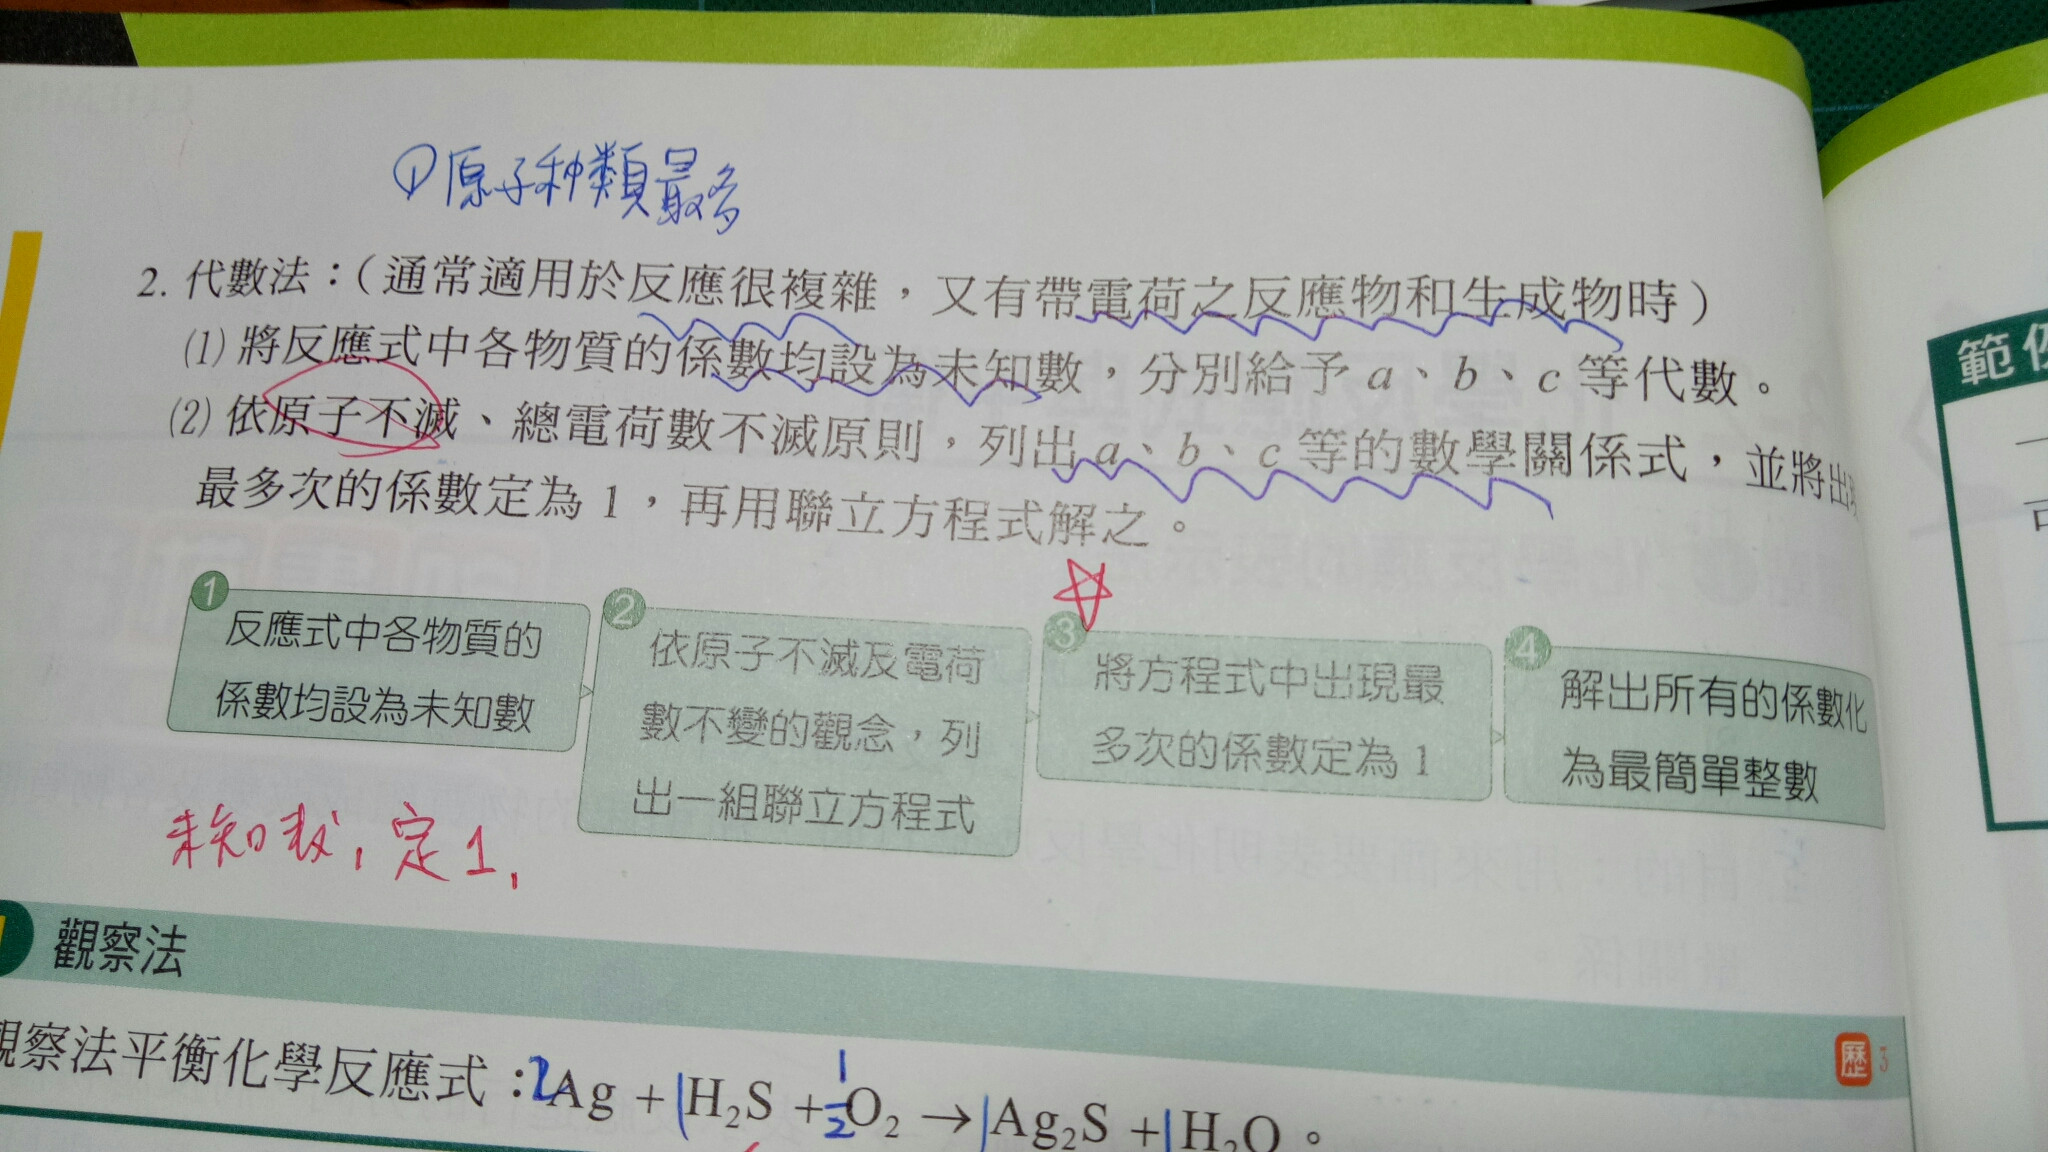 ①原子种類最多
2. 代數法：（通常適用於反應很複雜，又有帶電荷之反應物和生成物時）
(1) 將反應式中各物質的係數均設為未知數，分別給予 a、b、c 等代數。
(2) 依原子不滅、總電荷數不滅原則，列出 a、b、c 等的數學關係式，並將出現
最多次的係數定為 1，再用聯立方程式解之。
1
反應式中各物質的
係數均設為未知數
2
依原子不滅及電荷
數不變的觀念，列
出一組聯立方程式
3
將方程式中出現最
多次的係數定為 1
4
解出所有的係數化
為最簡單整數
未知數，定1，
觀察法
觀察法平衡化學反應式：2Ag + 1H₂S + ½O₂ → 1Ag₂S + 1H₂O。
歷 3
範例